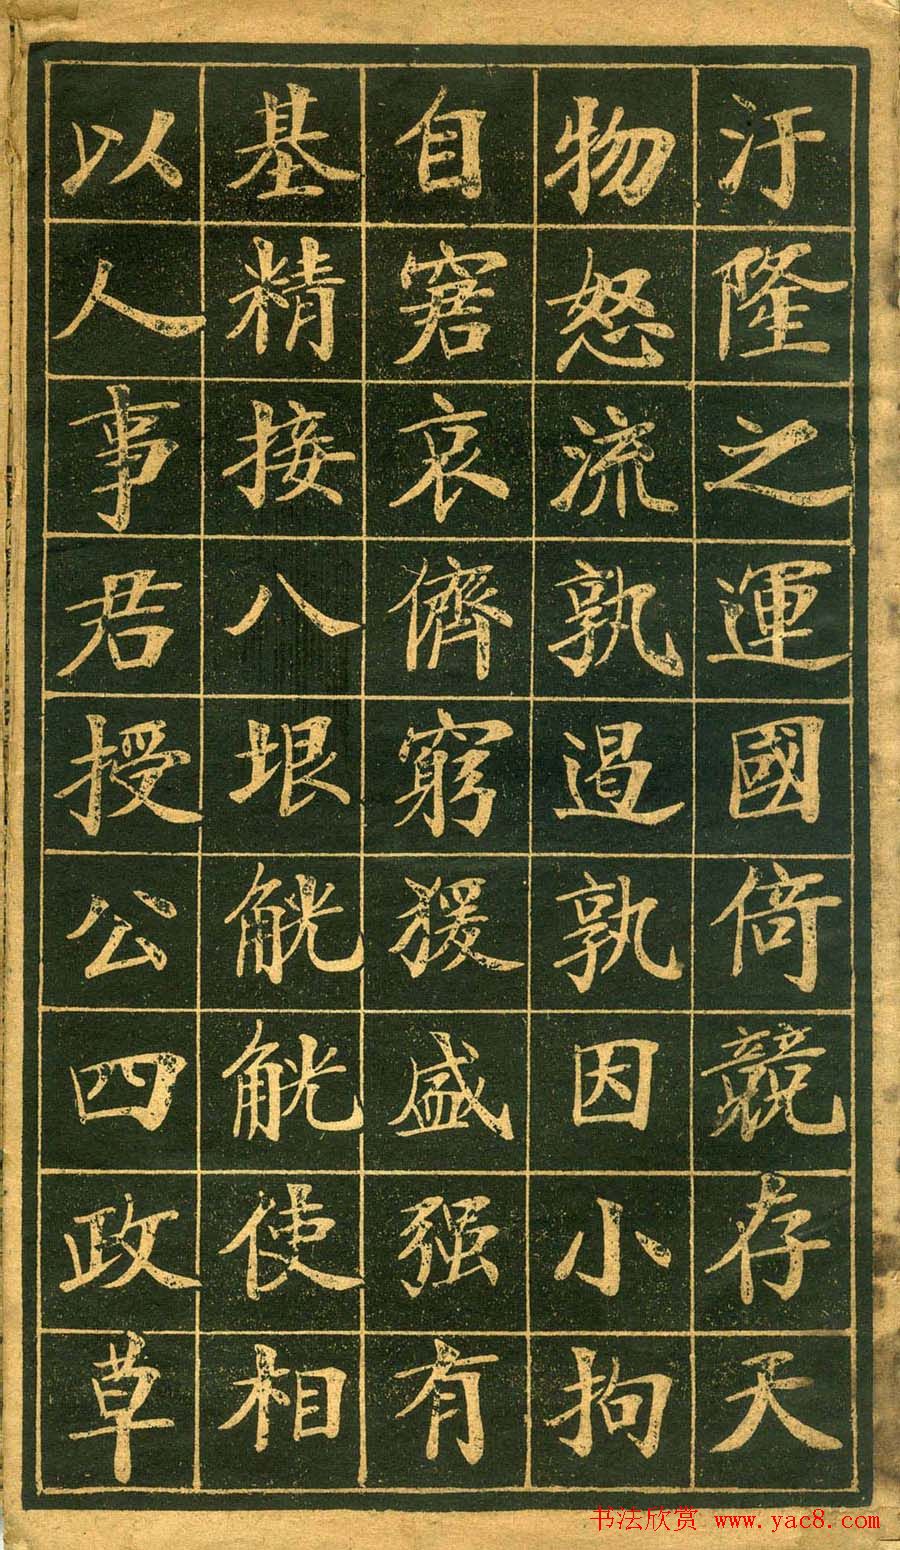 汙隆之運國倚競存天
物怒流孰遏孰因小拘
自窘哀儕窮猨盛强有
基精接八垠觥觥使相
以人事君授公四政草
书法欣赏 www.yac8.com